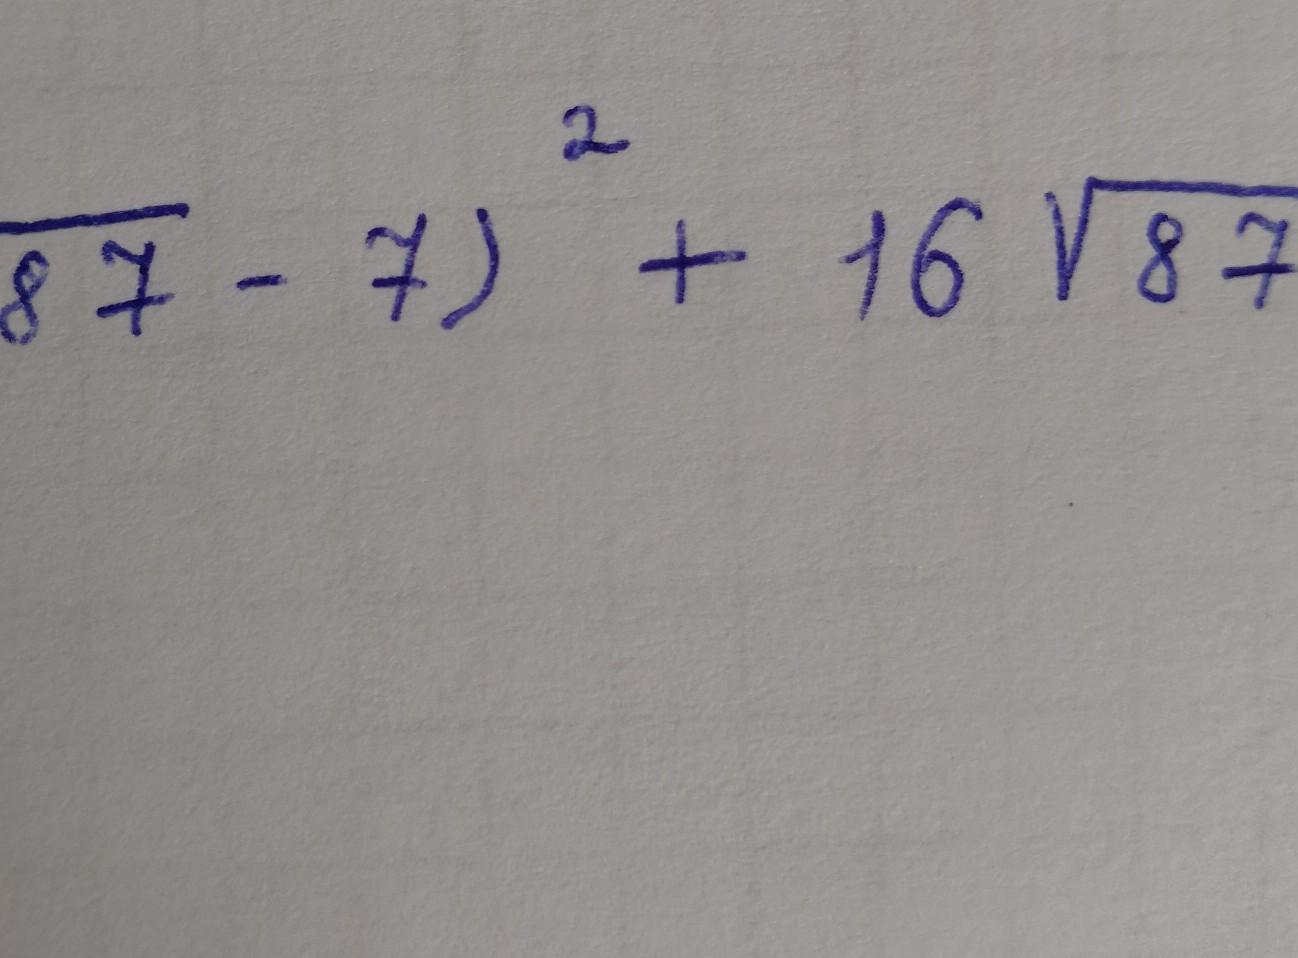 √87 - 7)² + 16 √87